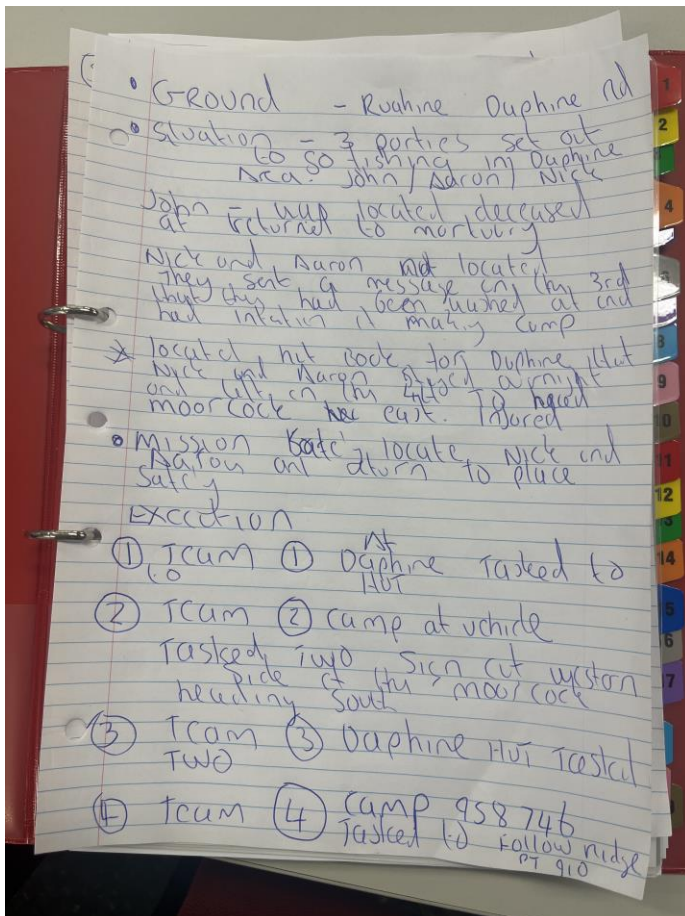 • GROUND - Ruahine Daphine rd
• Situation - 3 parties set out
to go fishing in Daphine
Area. John / Aaron / Nick
John - was located deceased
at returned to mortuary
Nick and Aaron not located
They sent a message on the 3rd
that they had been washed at and
had intation it making camp
* located hut book for Daphine Hut
Nick and Aaron stayed a night
and left on the 4th to head
moorcock east. Injored
• Mission locate Nick and
Aaron ant return to place
safty
EXCCUTION
① Team ① At Daphine Tasked to
to HUT
② Team ② camp at vehicle
Tasked Two Sign cut weston
side of the moorcock
heading South
③ Team ③ Daphine HUT Tasked
TWO
④ Team ④ Camp 958 746
Tasked to Follow ridge
PT 910
1
2
4
8
9
10
11
12
13
14
15
16
17